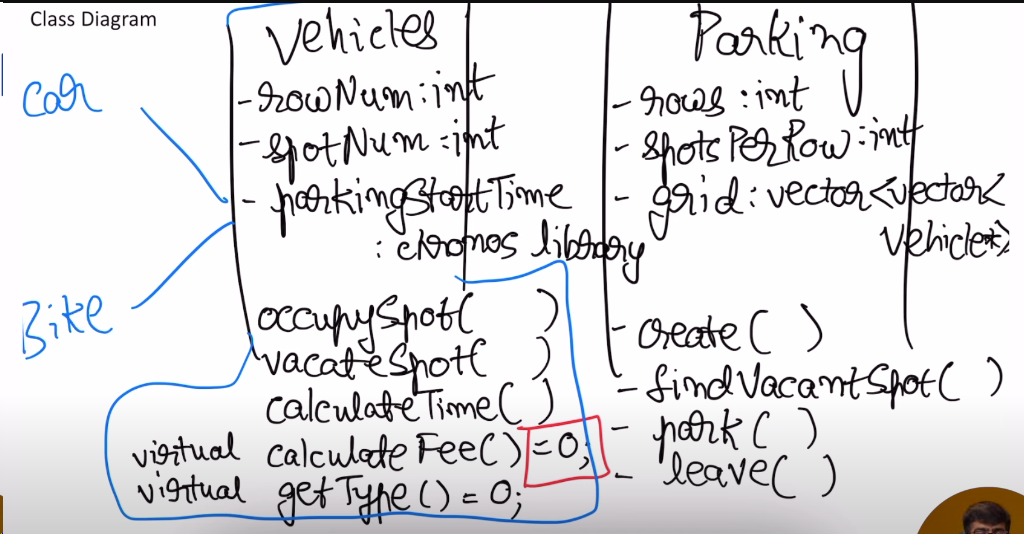 Class Diagram
Vehicles
- rowNum : int
- spotNum : int
- parkingStartTime
: chronos library
occupySpot( )
vacateSpot( )
calculateTime( )
virtual calculateFee() = 0;
virtual getType() = 0;
Parking
- rows : int
- spotsPerRow : int
- grid : vector<vector<
Vehicle*>>
- create( )
- findVacantSpot( )
- park( )
- leave( )
Car
Bike